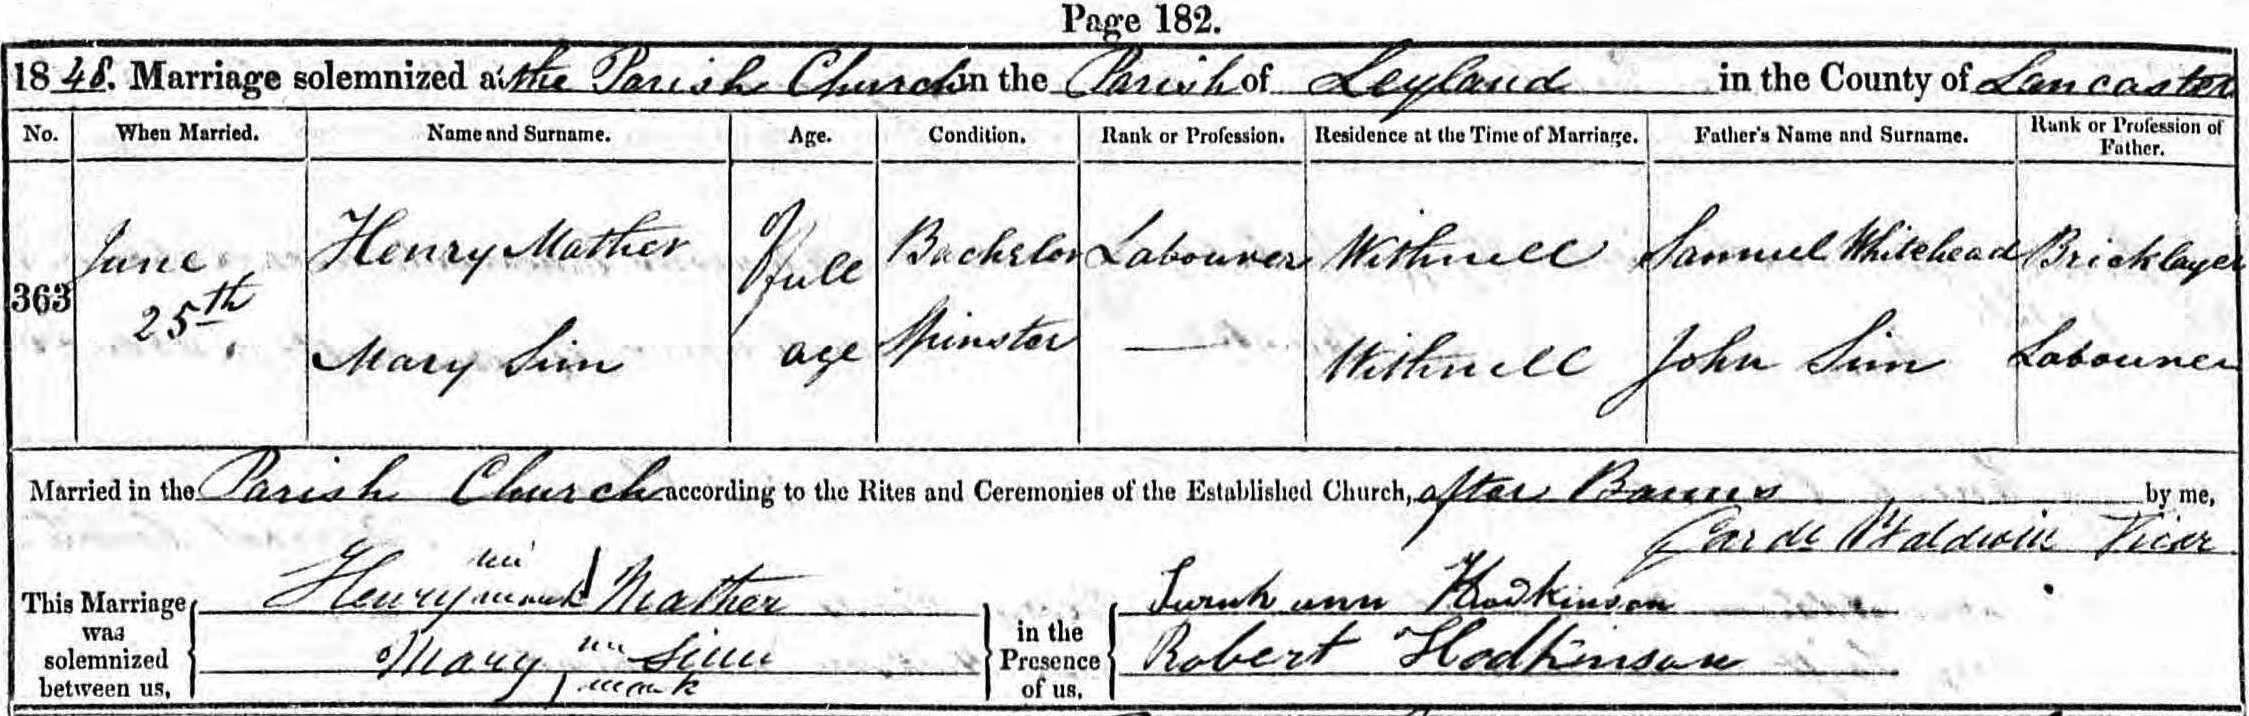 Page 182.
1848. Marriage solemnized at the Parish Church in the Parish of Leyland in the County of Lancaster
No. When Married. Name and Surname. Age. Condition. Rank or Profession. Residence at the Time of Marriage. Father's Name and Surname. Rank or Profession of Father.
363 June 25th. Henry Mather Of full Bachelor Labourer Withnell Samuel Whitehead Bricklayer
Mary Sim age Spinster — Withnell John Sim Labourer
Married in the Parish Church according to the Rites and Ceremonies of the Established Church, after Banns by me,
Baldwin Vicar
This Marriage was solemnized between us, Henry his mark Mather
Mary her mark Sim
in the Presence of us, Sarah ann Hodkinson
Robert Hodkinson